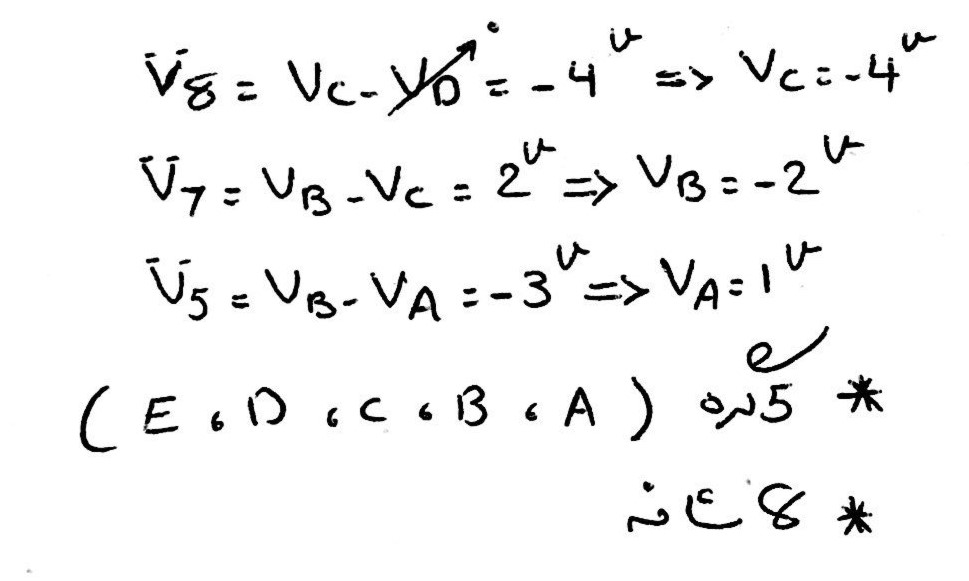 V8 = VC - VD = -4v => VC = -4v
V7 = VB - VC = 2v => VB = -2v
V5 = VB - VA = -3v => VA = 1v
* 5 گره (A، B، C، D، E)
* 8 شاخه